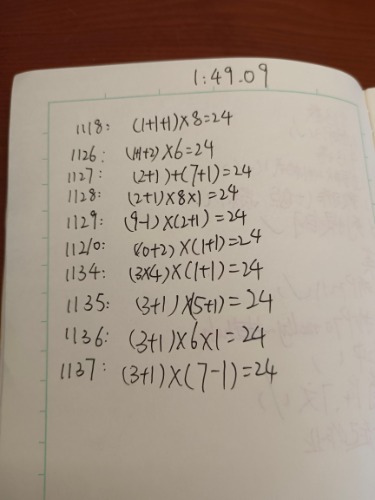 1:49.09
1118: (1+1+1)×8=24
1126: (1+1+2)×6=24
1127: (2+1)+(7+1)=24
1128: (2+1)×8×1=24
1129: (9-1)×(2+1)=24
11210: (10+2)×(1+1)=24
1134: (3×4)×(1+1)=24
1135: (3+1)×(5+1)=24
1136: (3+1)×6×1=24
1137: (3+1)×(7-1)=24